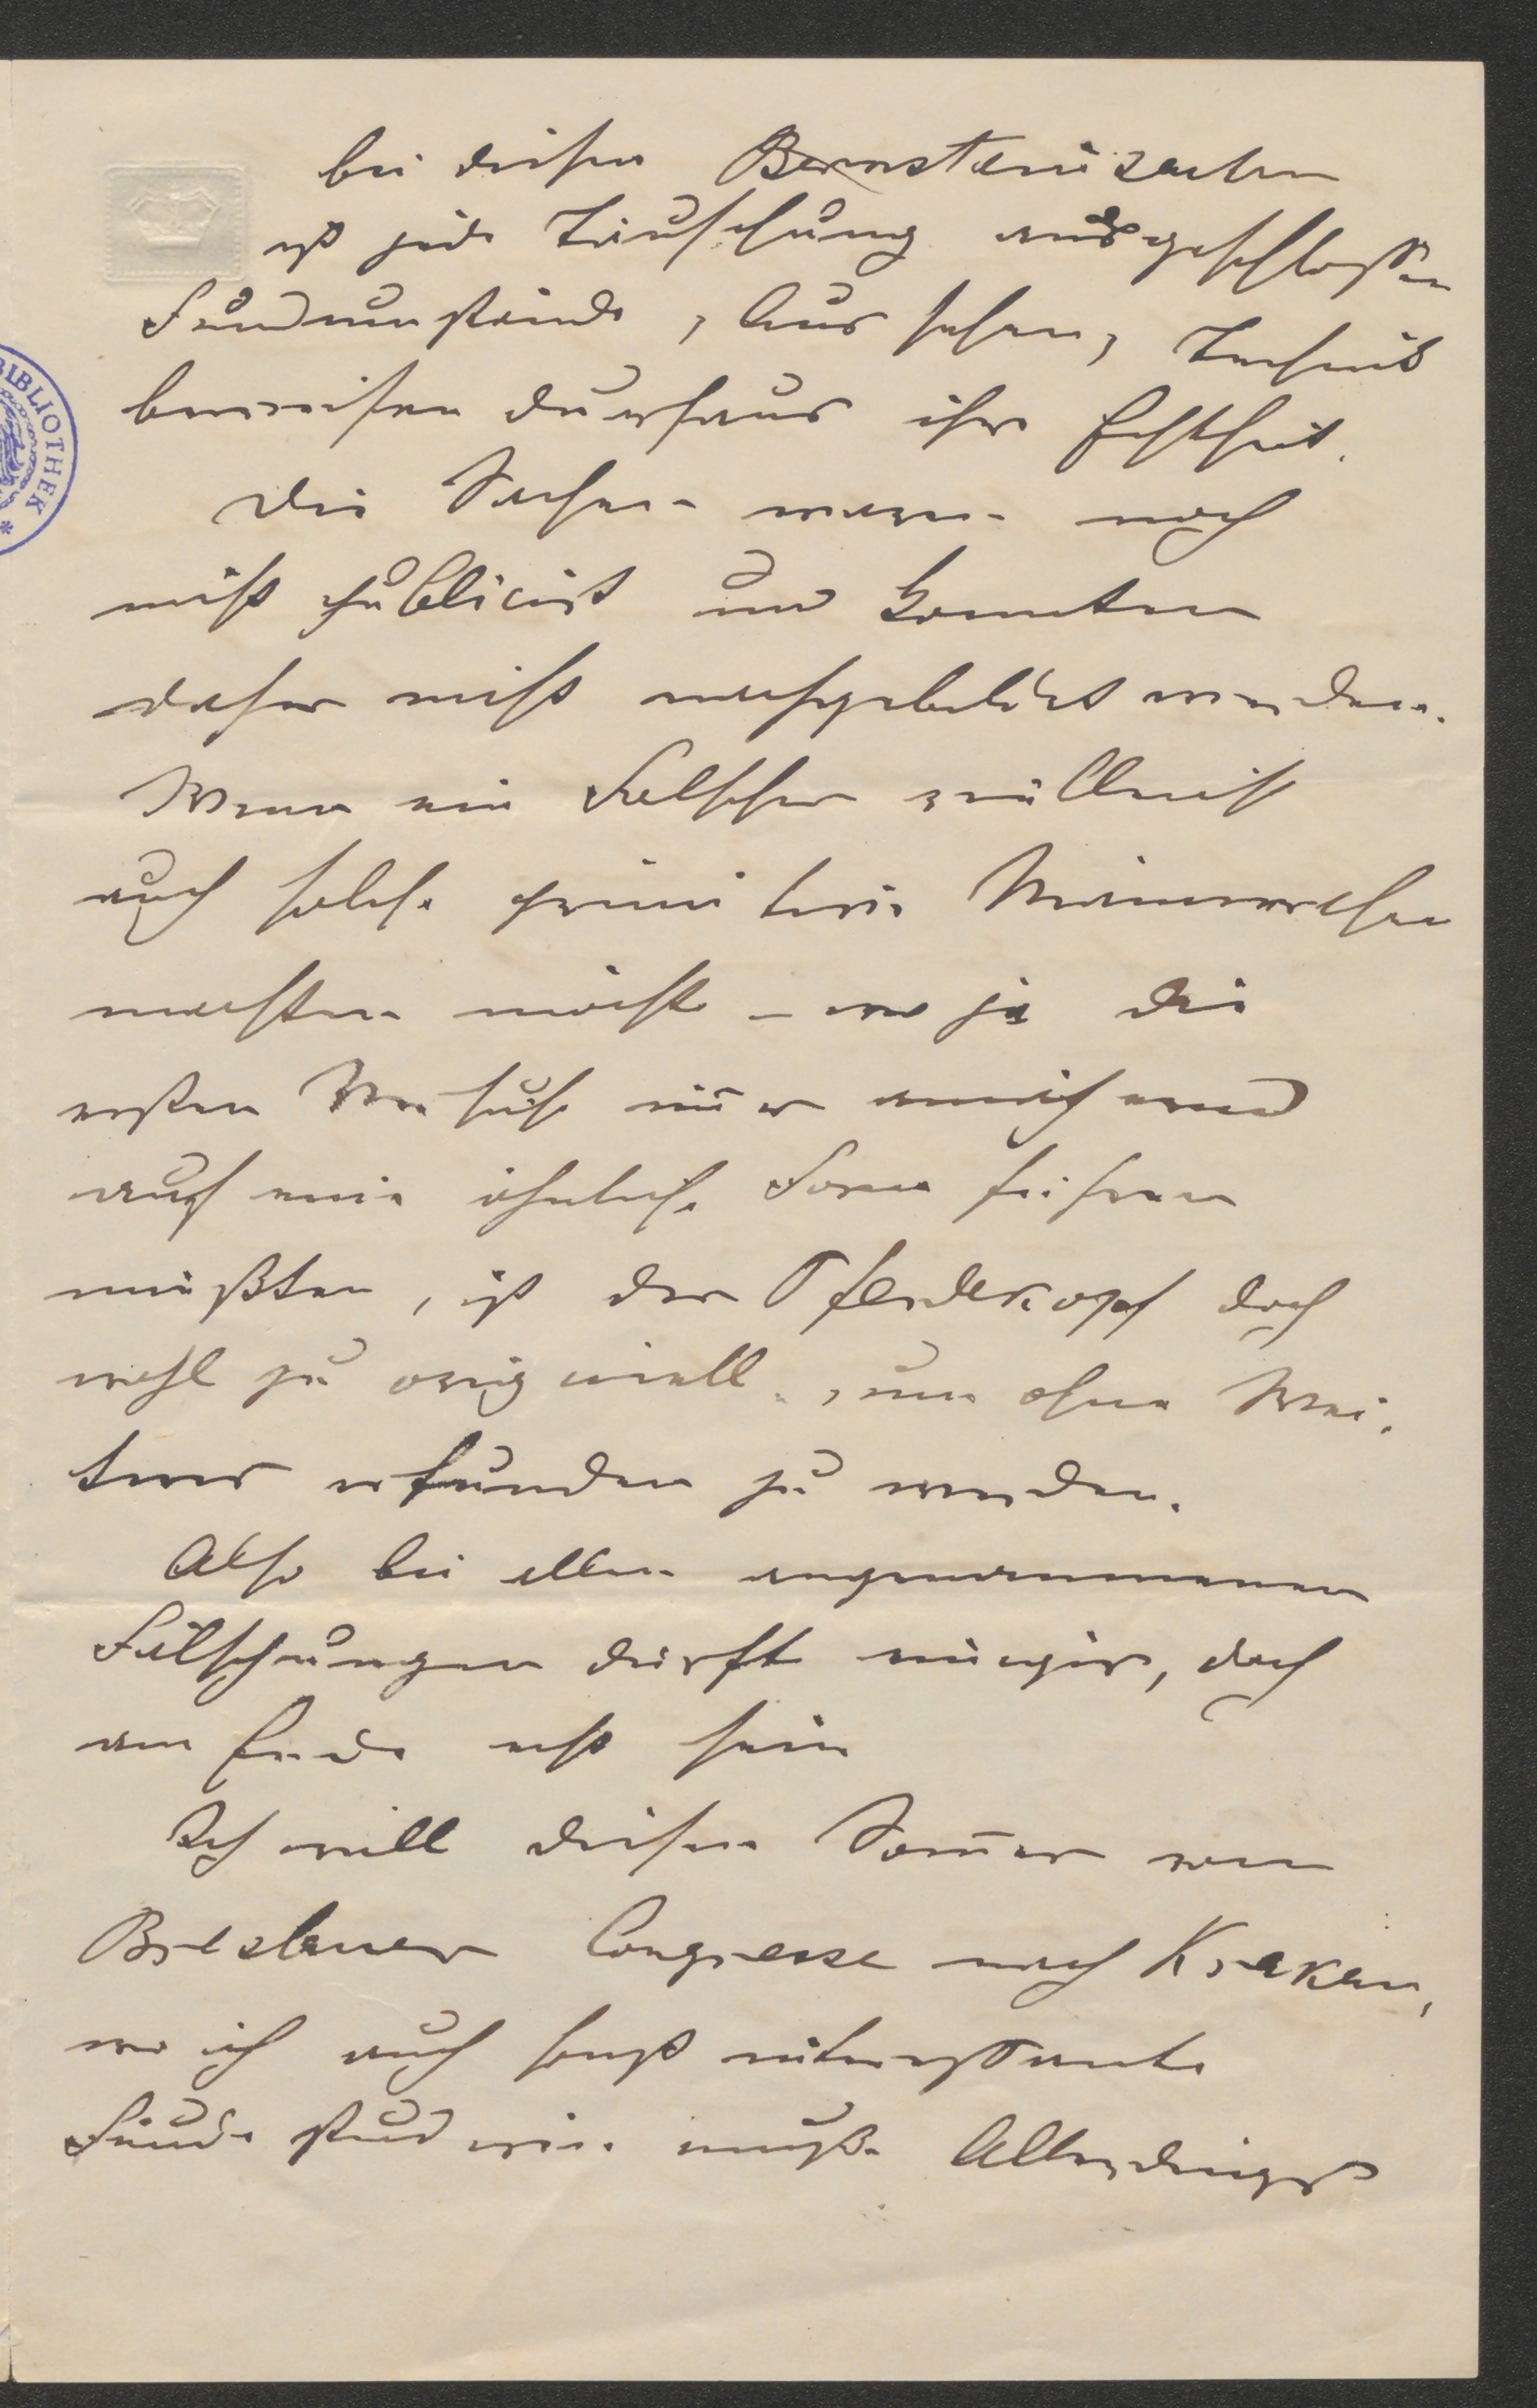 bei diesen Bernsteinsachen
ist jede Täuschung ausgeschlossen
Fundumstände, Aussehen, Technik
beweisen durchaus ihre Echtheit.
Die Sachen waren noch
nicht publicirt und konnten
daher nicht nachgebildet werden.
Wenn ein Fälscher vielleicht
auch solche primitive Männerchen
machen möchte – wo ja die
ersten Versuche im̅er annähernd
auf eine ähnliche Form führen
müßten, ist der Pferdekopf doch
wohl zu originell, um ohne Wei-
teres erfunden zu werden.
Also bei allen angenommenen
Fälschungen dürfte einiges, doch
am Ende echt sein
Ich will diesen Som̅er vom
Breslauer Congresse nach Krakau,
wo ich auch sonst interessante
Funde studiren muß. Allerdings
BIBLIOTHEK